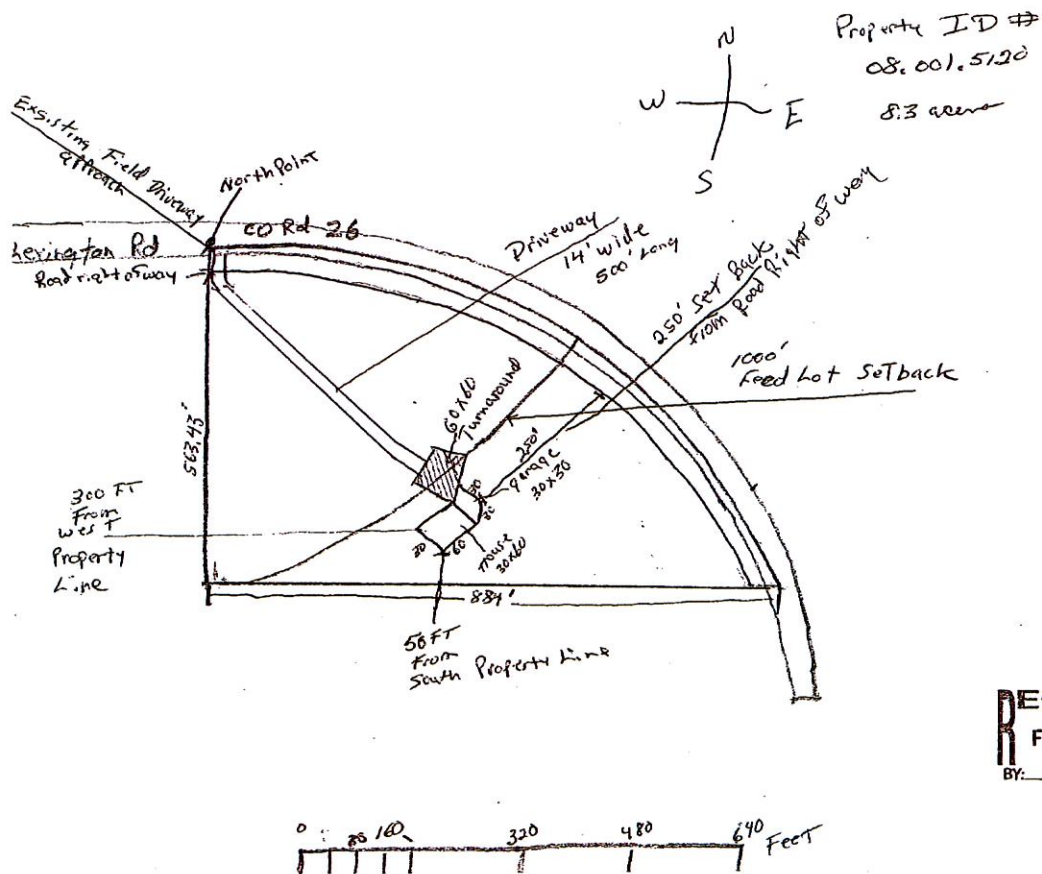 Property ID #
08.001.5120
8.3 acers
N
W E
S
Exsisting Field Driveway
approach
North Point
CO Rd 26
Lexington Rd
Road right of way
Driveway
14' wide
500' Long
250' Set Back
from Road Right of way
1000'
Feed Lot Setback
60x60
Turnaround
250'
garage
30x30
30
30
563.43'
300 FT
From
West
Property
Line
30
60
House
30x60
884'
50 FT
From
South Property Line
BY:
0 160 320 480 640 Feet